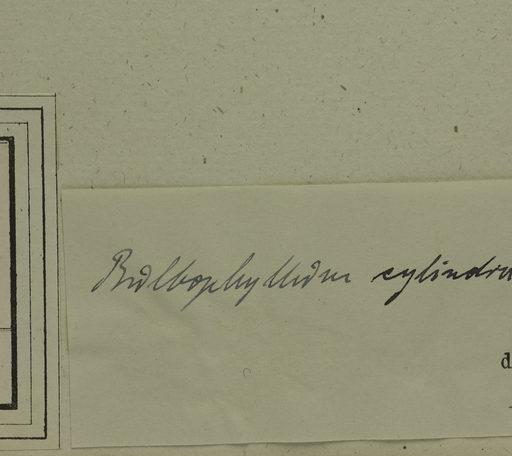 Bulbophyllum cylindra
d